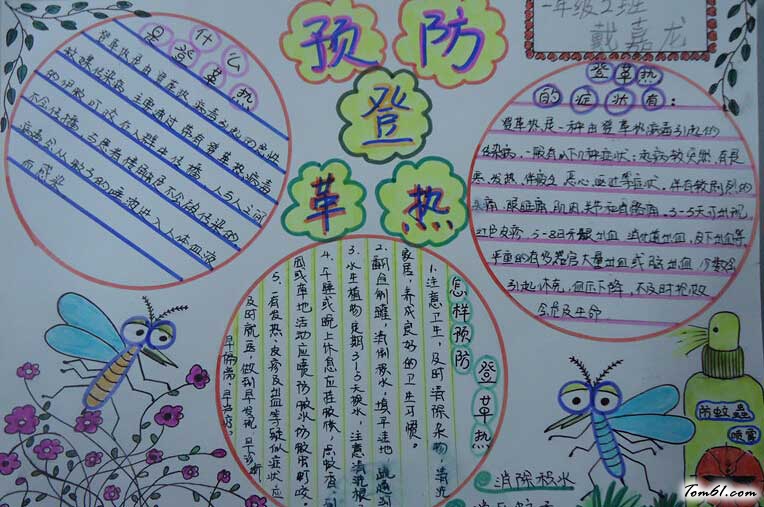 预防
登
革热
一年级2班
戴嘉龙
什么
是登革热
登革热是由登革热病毒引起的急性
传染病,主要通过带有登革热病毒
的伊蚊可以在人群中传播,人与人之间
不会传播,与患者接触是不会被传染的
病毒只从蚊子的唾液进入人体血液
而感染
登革热
的症状有:
登革热是一种由登革热病毒引起的
传染病,一般有以下几种症状,起病较突然,有畏
寒、发热、伴随乏 恶心、呕吐等症状,伴有较剧烈的
头痛、眼眶痛、肌肉关节
3-5天可出现
红色皮疹,5-8日牙龈出血 消化道出血,皮下出血等,
严重的有多器官大量出血或脑出血,少数会
引起休克,血压下降,不及时抢救,
会危及生命
怎样预防
登革热
1.注意卫生,及时清除杂物,清洗
家居,养成良好的卫生习惯。
2.翻盆倒罐,清倒积水,填平洼地 疏通
3.水生植物定期3-5天换水,注意清洗根
4.午睡或晚上休息应挂蚊帐,点蚊香,到
园或草地活动应喷防蚊水防蚊虫叮咬。
5.有发热、皮疹及出血等疑似症状应
及时就医,做到早发现、早诊断
早隔离、早治疗。
消除积水
防蚊蟲
喷雾
Tom61.com